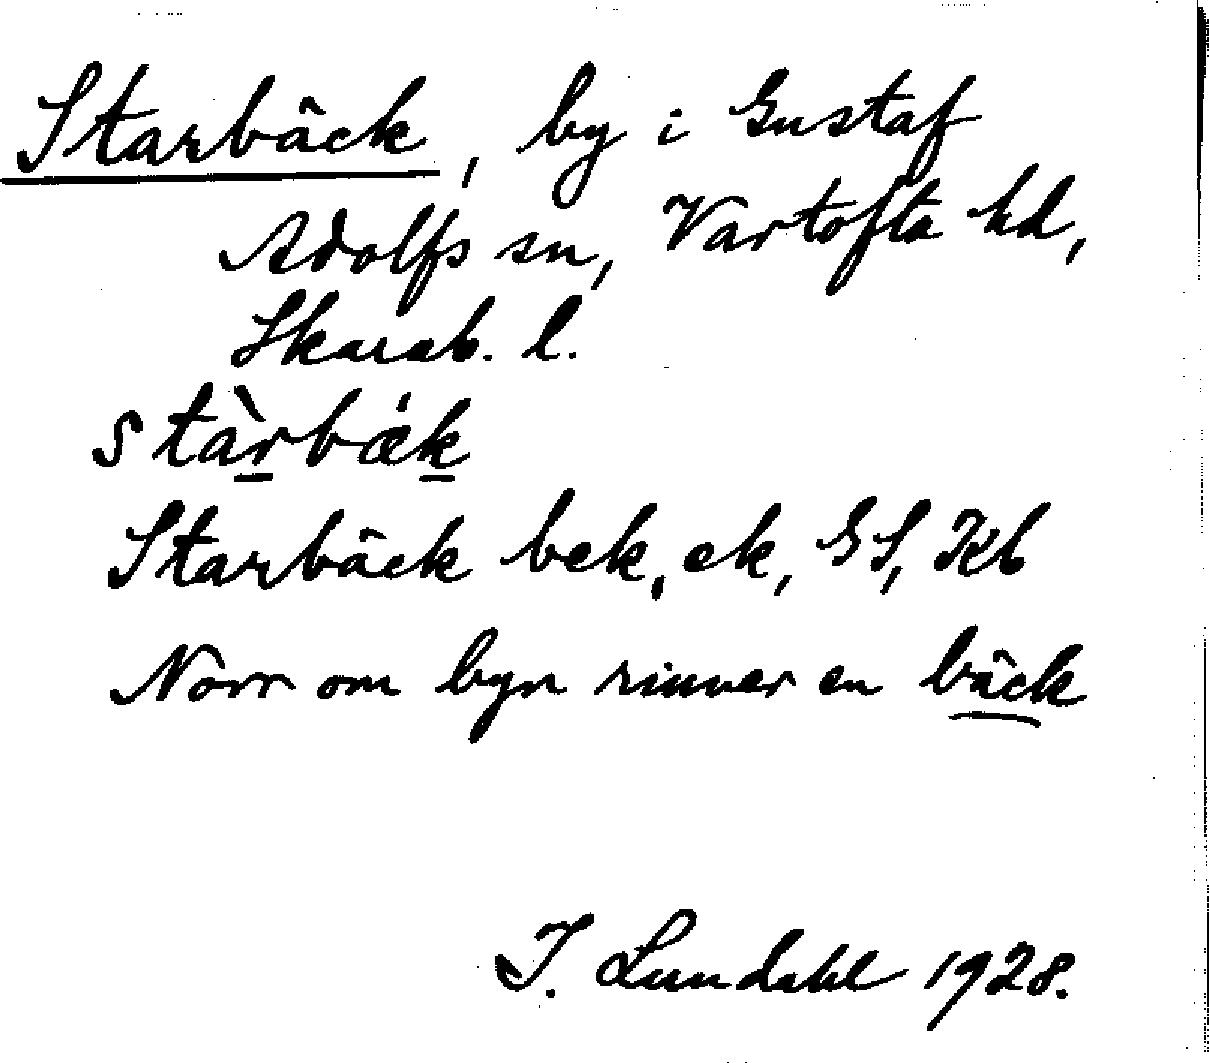 Starbäck, by i Gustaf
Adolfs sn, Vartofta hd,
Skarab. l.
stàrbæ̍k
Starbäck bek, ek, GS, Kb
Norr om byn rinner en bäck
I. Lundahl 1928.